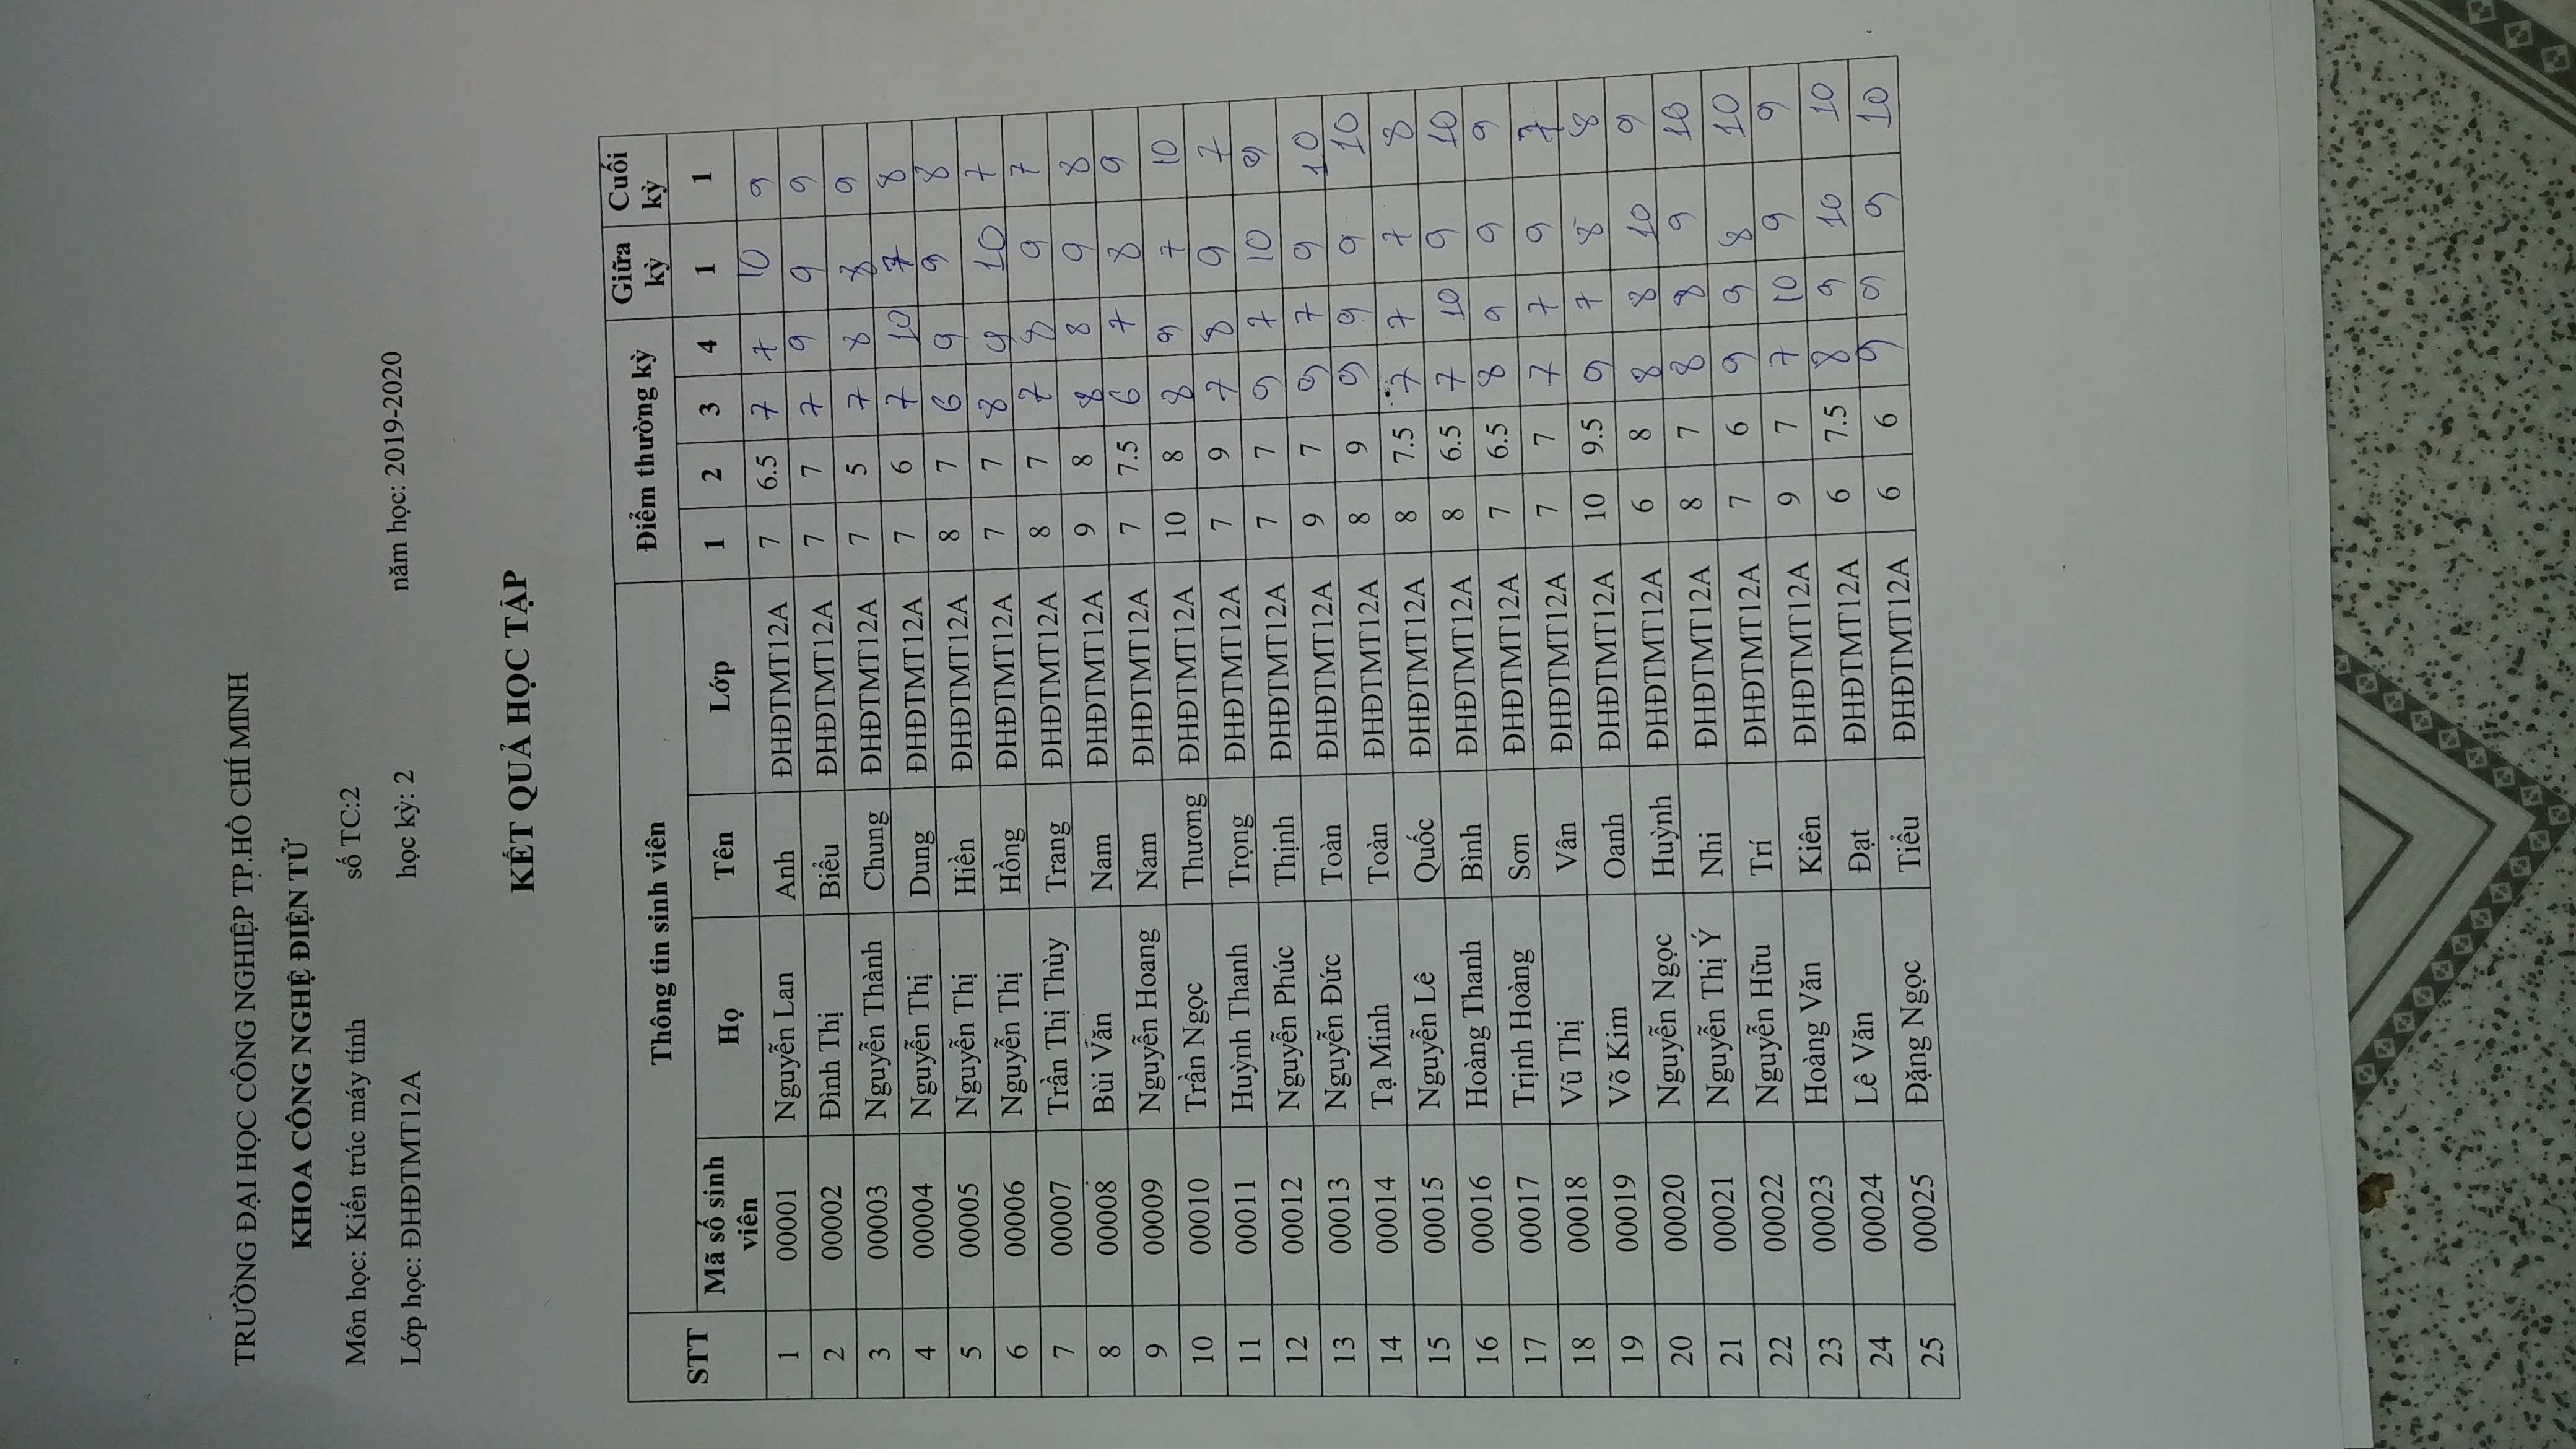 TRƯỜNG ĐẠI HỌC CÔNG NGHIỆP TP.HỒ CHÍ MINH
KHOA CÔNG NGHỆ ĐIỆN TỬ
Môn học: Kiến trúc máy tính số TC:2
Lớp học: ĐHĐTMT12A học kỳ: 2 năm học: 2019-2020
KẾT QUẢ HỌC TẬP
STT Thông tin sinh viên Điểm thường kỳ Giữa kỳ Cuối kỳ
Mã số sinh viên Họ Tên Lớp 1 2 3 4 1 1
1 00001 Nguyễn Lan Anh ĐHĐTMT12A 7 6.5 7 7 10 9
2 00002 Đình Thị Biểu ĐHĐTMT12A 7 7 7 9 9 9
3 00003 Nguyễn Thành Chung ĐHĐTMT12A 7 5 7 8 8 9
4 00004 Nguyễn Thị Dung ĐHĐTMT12A 7 6 7 10 7 8
5 00005 Nguyễn Thị Hiền ĐHĐTMT12A 8 7 6 9 9 8
6 00006 Nguyễn Thị Hồng ĐHĐTMT12A 7 7 8 9 10 7
7 00007 Trần Thị Thùy Trang ĐHĐTMT12A 8 7 7 8 9 7
8 00008 Bùi Văn Nam ĐHĐTMT12A 9 8 8 8 9 8
9 00009 Nguyễn Hoang Nam ĐHĐTMT12A 7 7.5 6 7 8 9
10 00010 Trần Ngọc Thương ĐHĐTMT12A 10 8 8 9 7 10
11 00011 Huỳnh Thanh Trọng ĐHĐTMT12A 7 9 7 8 9 7
12 00012 Nguyễn Phúc Thịnh ĐHĐTMT12A 7 7 9 7 10 9
13 00013 Nguyễn Đức Toàn ĐHĐTMT12A 9 7 9 7 9 10
14 00014 Tạ Minh Toàn ĐHĐTMT12A 8 9 9 9 9 10
15 00015 Nguyễn Lê Quốc ĐHĐTMT12A 8 7.5 7 7 7 8
16 00016 Hoàng Thanh Bình ĐHĐTMT12A 8 6.5 7 10 9 10
17 00017 Trịnh Hoàng Sơn ĐHĐTMT12A 7 6.5 8 9 9 9
18 00018 Vũ Thị Vân ĐHĐTMT12A 7 7 7 7 9 7
19 00019 Võ Kim Oanh ĐHĐTMT12A 10 9.5 9 7 8 8
20 00020 Nguyễn Ngọc Huỳnh ĐHĐTMT12A 6 8 8 8 10 9
21 00021 Nguyễn Thị Ý Nhi ĐHĐTMT12A 8 7 8 8 9 10
22 00022 Nguyễn Hữu Trí ĐHĐTMT12A 7 6 9 9 8 10
23 00023 Hoàng Văn Kiên ĐHĐTMT12A 9 7 7 10 9 9
24 00024 Lê Văn Đạt ĐHĐTMT12A 6 7.5 8 9 10 10
25 00025 Đặng Ngọc Tiểu ĐHĐTMT12A 6 6 9 9 9 10